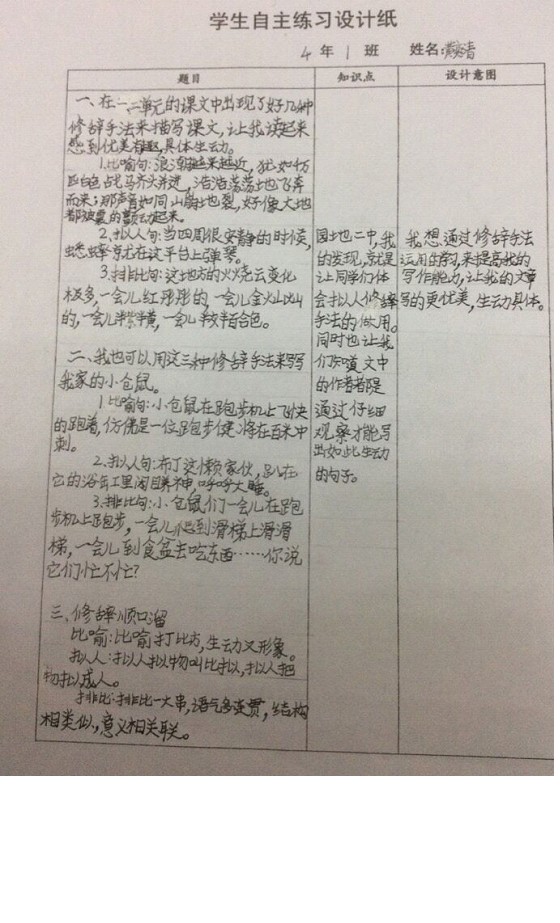 学生自主练习设计纸
4 年 1 班 姓名:
题目
知识点
设计意图
一、在一、二单元的课文中出现了好几种
修辞手法来描写课文,让我读起来
感到优美有趣,具体生动。
1.比喻句:浪潮越来越近,犹如千万
匹白色战马齐头并进,浩浩荡荡地飞奔
而来;那声音如同山崩地裂,好像大地
都被震的颤动起来。
2.拟人句:当四周很安静的时候,
蟋蟀就在这平台上弹琴。
3.排比句:这地方的火烧云变化
极多,一会儿红彤彤的,一会儿金灿灿
的,一会儿半紫半黄,一会儿半灰半百合色。
二、我也可以用这三种修辞手法来写写
我家的小仓鼠。
1比喻句:小仓鼠在跑步机上飞快
的跑着,仿佛是一位跑步健将在百米冲
刺。
2.拟人句:布丁这懒家伙,趴在
它的浴缸里闭目养神,呼呼大睡。
3.排比句:小仓鼠们一会儿在跑
步机上跑步,一会儿到滑梯上滑滑
梯,一会儿到食盆去吃东西……你说
它们忙不忙?
三、修辞顺口溜
比喻:比喻打比方,生动又形象。
拟人:拟人拟物叫比拟,拟人把
物拟成人。
排比:排比一大串,语气多连贯,结构
相类似,意义相关联。
园地二中,我
的发现,就是
让同学们体
会拟人修辞
手法的作用。
同时也让我
们知道文中
的作者都是
通过仔细
观察才能写
出如此生动
的句子。
我想通过修辞手法
运用的学习,来提高我的
写作能力,让我的文章
写的更优美,生动具体。